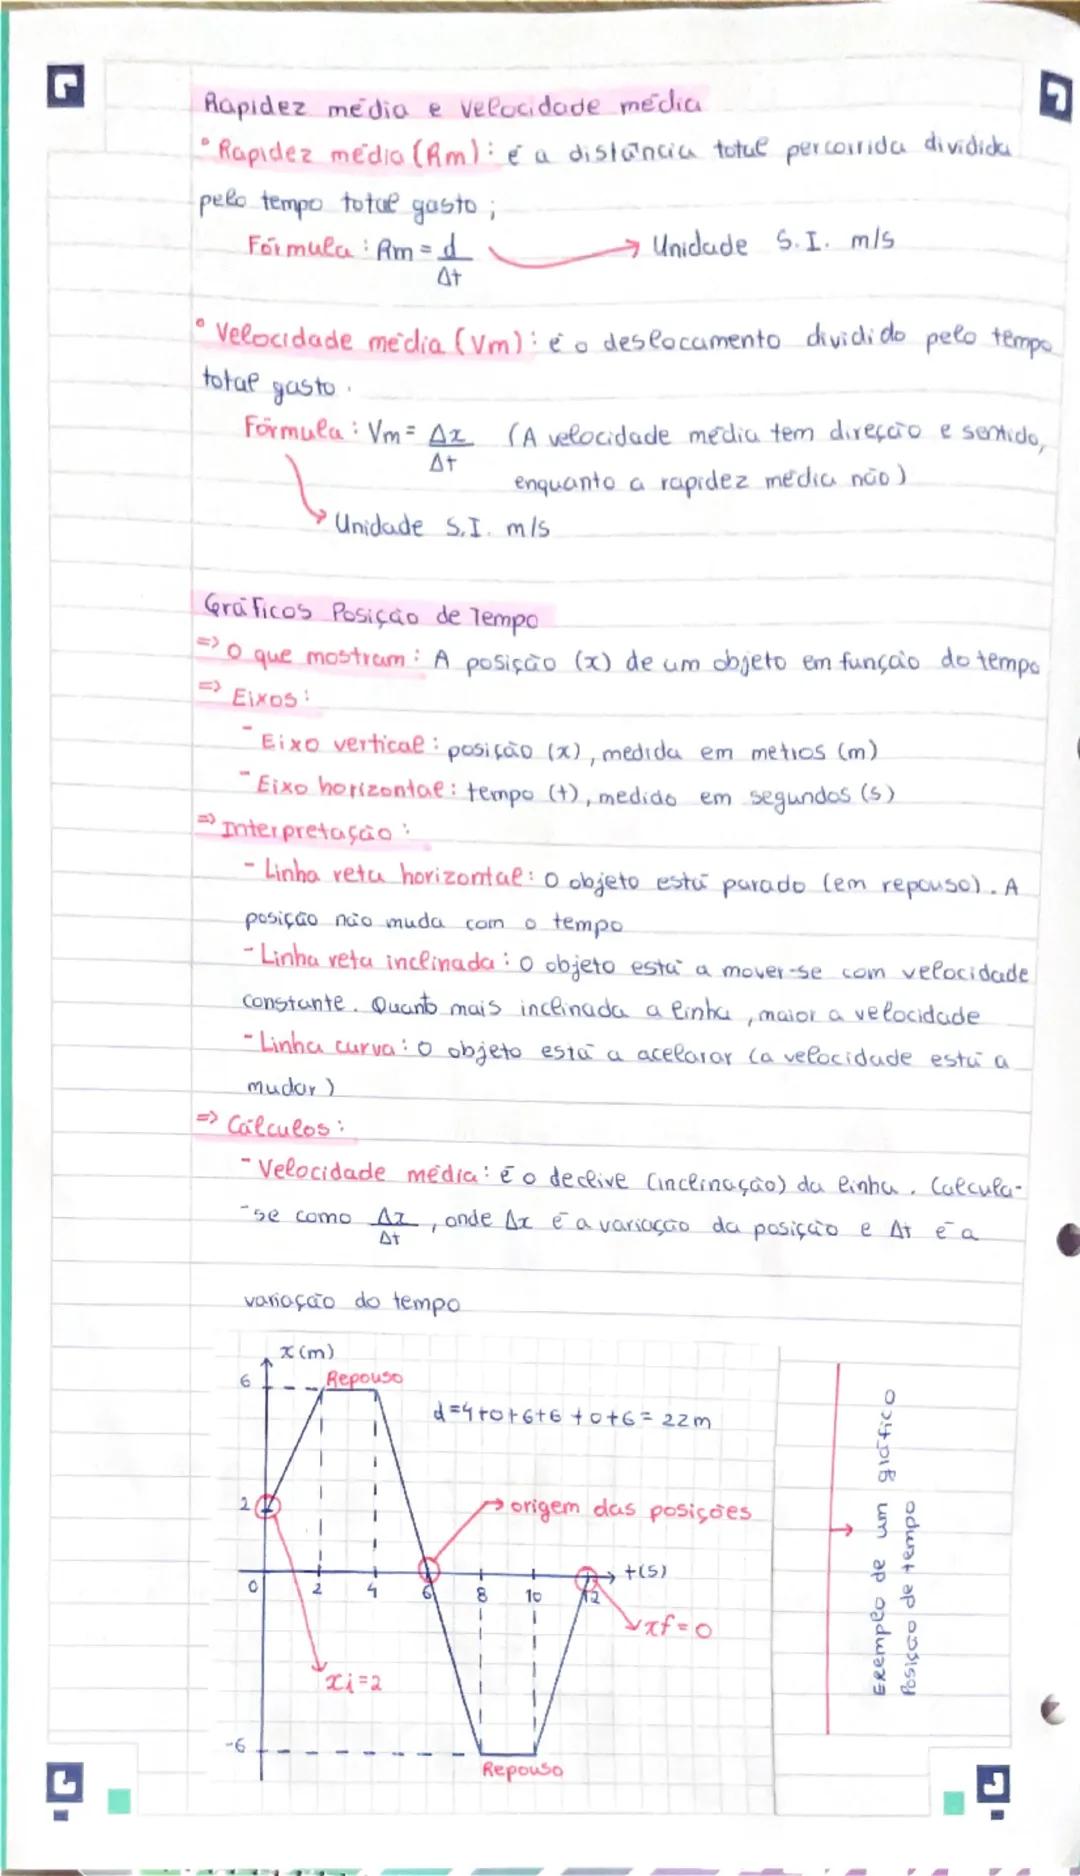 Rapidez média e velocidade média
° Rapidez média (Rm): é a distância total percorrida dividida
pelo tempo total gasto;
Fórmula: Rm = d/Δt → Unidade S.I. m/s
° Velocidade média (Vm): é o deslocamento dividido pelo tempo
total gasto.
Fórmula: Vm = Δx/Δt (A velocidade média tem direção e sentido,
enquanto a rapidez média não)
Unidade S.I. m/s
Gráficos Posição de Tempo
=> O que mostram: A posição (x) de um objeto em função do tempo
=> Eixos:
- Eixo vertical: posição (x), medida em metros (m)
- Eixo horizontal: tempo (t), medido em segundos (s)
=> Interpretação:
- Linha reta horizontal: O objeto está parado (em repouso). A
posição não muda com o tempo
- Linha reta inclinada: O objeto está a mover-se com velocidade
constante. Quanto mais inclinada a linha, maior a velocidade
- Linha curva: O objeto está a acelarar (a velocidade está a
mudar)
=> Cálculos:
- Velocidade média: é o declive (inclinação) da linha. Calcula-
-se como Δx/Δt, onde Δx é a variação da posição e Δt é a
variação do tempo
x (m)
6
Repouso
d=4+0+6+6+0+6= 22m
2
origem das posições
t(s)
0 2 4 6 8 10 12
xf=0
xi=2
-6
Repouso
Exemplo de um gráfico
Posição de tempo